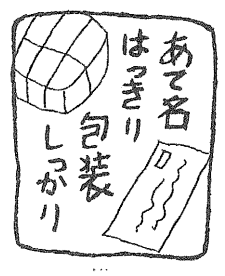 あて名
はっきり
包装
しっかり